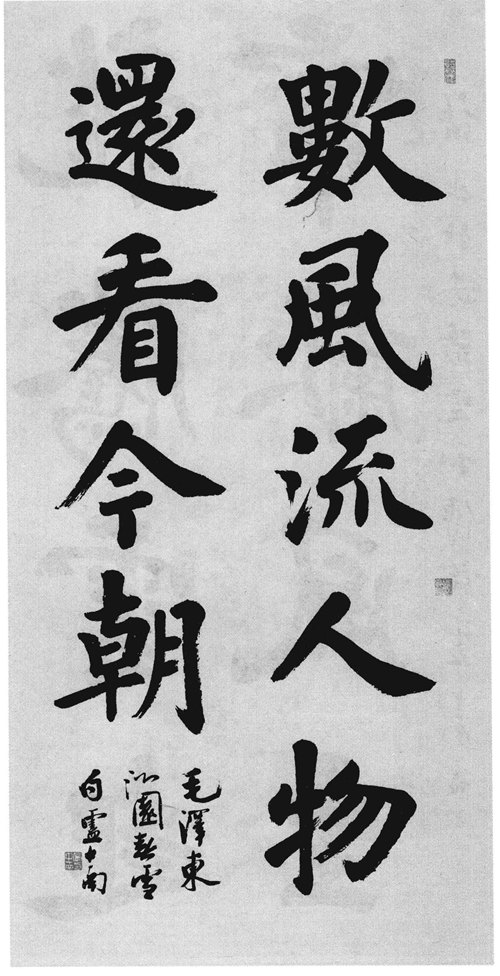 數風流人物
還看今朝
毛澤東
沁園春雪